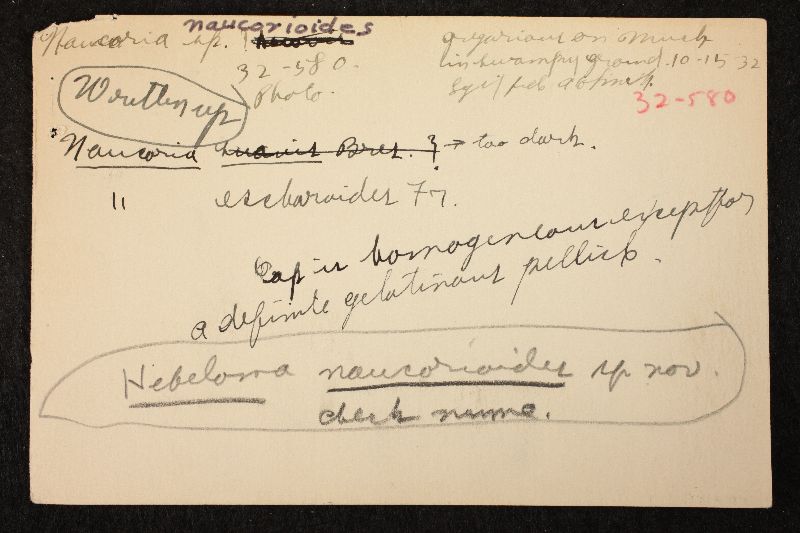 naucorioides
Naucoria sp.
gregarious on muck
32-580.
in swampy ground. 10-15-32
Photo.
32-580
Written up
Naucoria suavis Bres. ? → too dark.
" escharoides Fr.
Cap is homogeneous except for
a definite gelatinous pellicle.
Hebeloma naucorioides sp nov.
check name.